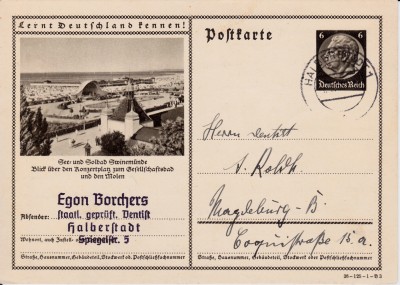 Lernt Deutschland kennen!
Postkarte
6 6
Deutsches Reich
HALBERSTADT 1
See- und Solbad Swinemünde
Blick über den Konzertplatz zum Gesellschaftsbad
und den Molen
Egon Borchers
Absender: staatl. geprüft. Dentist
Halberstadt
Wohnort, auch Zustell-
Spiegelstr. 5
Straße, Hausnummer, Gebäudeteil, Stockwerk od. Postschließfachnummer
Herrn Dentist
Magdeburg-B.
Coquistraße 15 a.
Straße, Hausnummer, Gebäudeteil, Stockwerk od. Postschließfachnummer